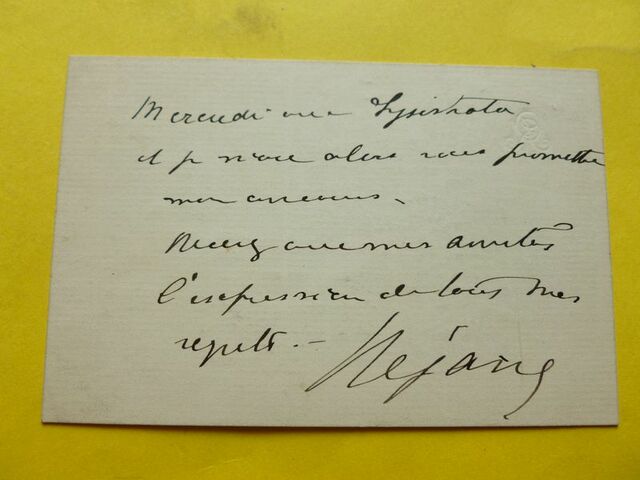 Mercredi avec Lysistrata
et je n'ose alors vous promettre
mon concours.
Recevez avec mes amitiés
l'expression de tous mes
regrets. —
Réjane